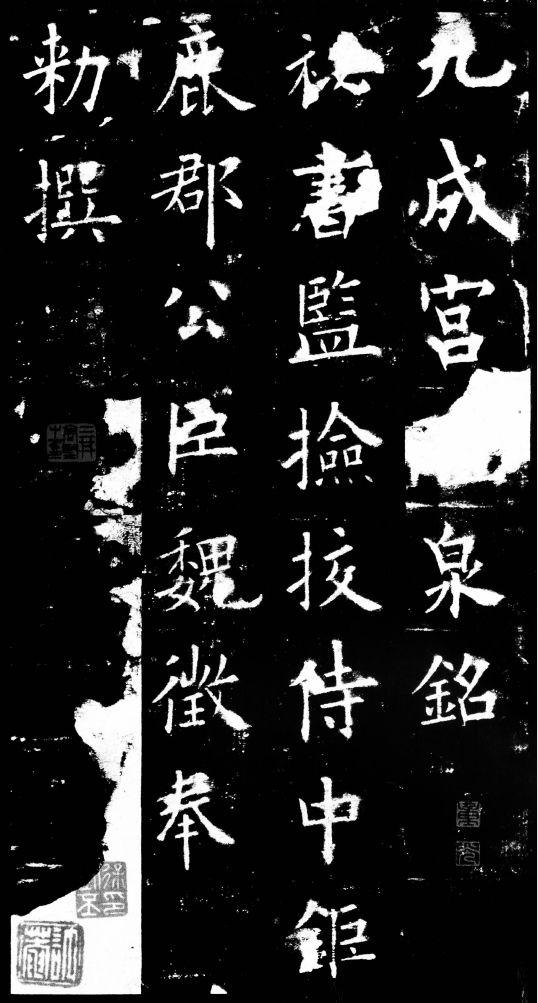 九成宮泉銘
祕書監撿挍侍中鉅
鹿郡公臣魏徵奉
勑撰